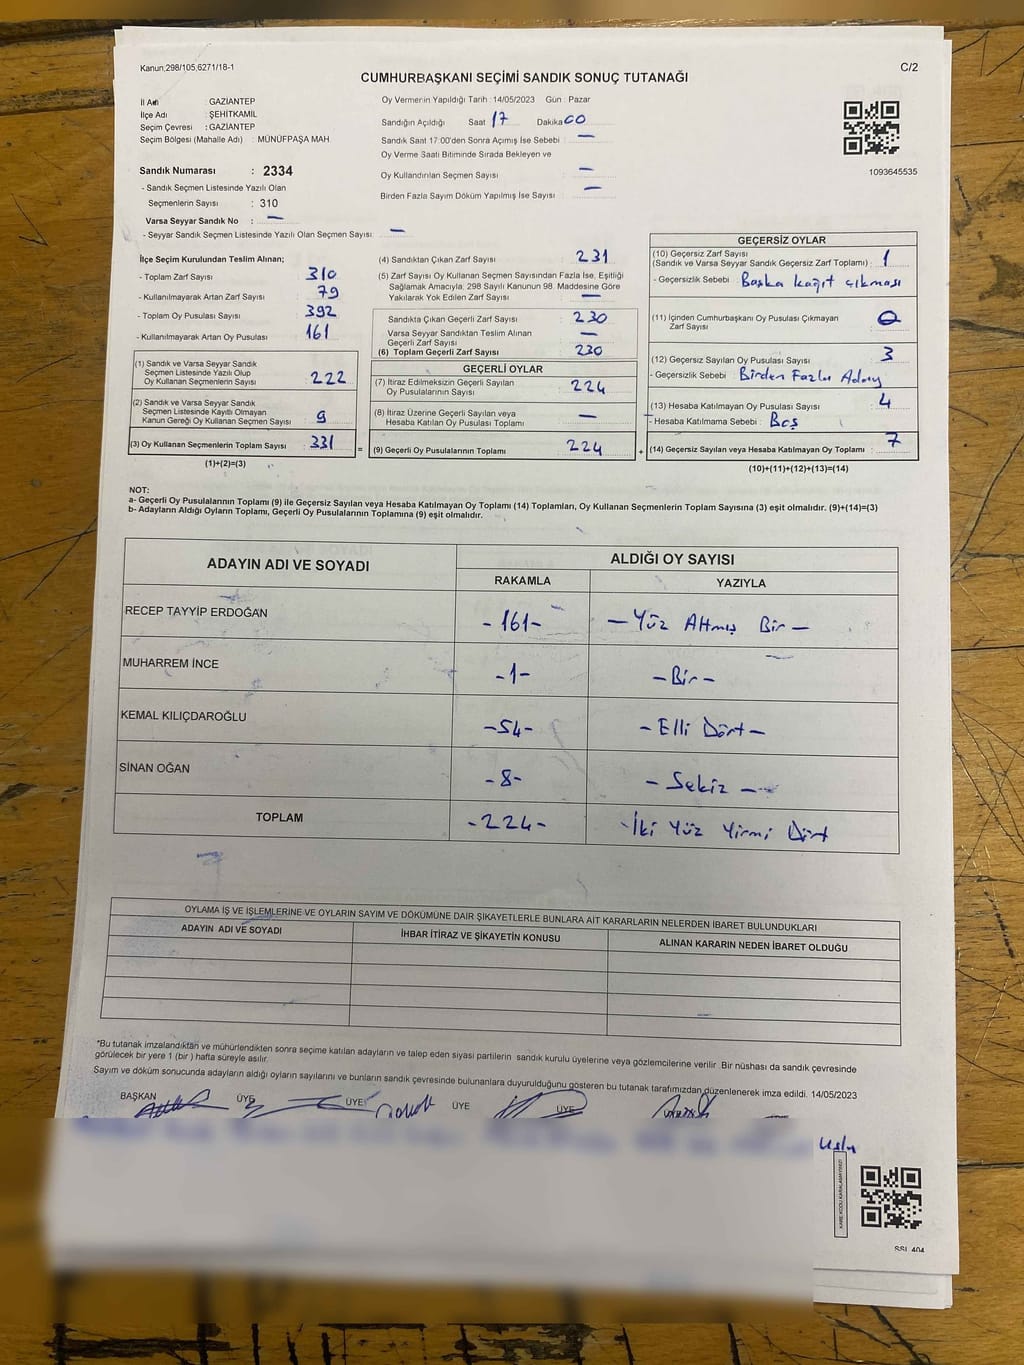 Kanun,298/105,6271/18-1
C/2
CUMHURBAŞKANI SEÇİMİ SANDIK SONUÇ TUTANAĞI
İl Adı : GAZİANTEP
İlçe Adı : ŞEHİTKAMİL
Seçim Çevresi : GAZİANTEP
Seçim Bölgesi (Mahalle Adı) : MÜNÜFPAŞA MAH.
Sandık Numarası : 2334
- Sandık Seçmen Listesinde Yazılı Olan
Seçmenlerin Sayısı : 310
Varsa Seyyar Sandık No : —
- Seyyar Sandık Seçmen Listesinde Yazılı Olan Seçmen Sayısı: —
Oy Vermenin Yapıldığı Tarih : 14/05/2023 Gün : Pazar
Sandığın Açıldığı Saat 17 Dakika 00
Sandık Saat 17:00'den Sonra Açımış İse Sebebi : —
Oy Verme Saati Bitiminde Sırada Bekleyen ve
Oy Kullandırılan Seçmen Sayısı : —
Birden Fazla Sayım Döküm Yapılmış İse Sayısı : —
1093645535
İlçe Seçim Kurulundan Teslim Alınan;
- Toplam Zarf Sayısı : 310
- Kullanılmayarak Artan Zarf Sayısı : 79
- Toplam Oy Pusulası Sayısı : 392
- Kullanılmayarak Artan Oy Pusulası : 161
(1) Sandık ve Varsa Seyyar Sandık
Seçmen Listesinde Yazılı Olup
Oy Kullanan Seçmenlerin Sayısı : 222
(2) Sandık ve Varsa Seyyar Sandık
Seçmen Listesinde Kayıtlı Olmayan
Kanun Gereği Oy Kullanan Seçmen Sayısı : 9
(3) Oy Kullanan Seçmenlerin Toplam Sayısı : 331 =
(1)+(2)=(3)
(4) Sandıktan Çıkan Zarf Sayısı : 231
(5) Zarf Sayısı Oy Kullanan Seçmen Sayısından Fazla İse, Eşitliği
Sağlamak Amacıyla, 298 Sayılı Kanunun 98. Maddesine Göre
Yakılarak Yok Edilen Zarf Sayısı : —
Sandıkta Çıkan Geçerli Zarf Sayısı : 230
Varsa Seyyar Sandıktan Teslim Alınan
Geçerli Zarf Sayısı : —
(6) Toplam Geçerli Zarf Sayısı : 230
GEÇERLİ OYLAR
(7) İtiraz Edilmeksizin Geçerli Sayılan
Oy Pusulalarının Sayısı : 224
(8) İtiraz Üzerine Geçerli Sayılan veya
Hesaba Katılan Oy Pusulası Toplamı : —
(9) Geçerli Oy Pusulalarının Toplamı : 224 +
GEÇERSİZ OYLAR
(10) Geçersiz Zarf Sayısı
(Sandık ve Varsa Seyyar Sandık Geçersiz Zarf Toplamı) : 1
- Geçersizlik Sebebi : Başka kağıt çıkması
(11) İçinden Cumhurbaşkanı Oy Pusulası Çıkmayan
Zarf Sayısı : 0
(12) Geçersiz Sayılan Oy Pusulası Sayısı : 3
- Geçersizlik Sebebi : Birden Fazla Aday
(13) Hesaba Katılmayan Oy Pusulası Sayısı : 4
- Hesaba Katılmama Sebebi : Boş
(14) Geçersiz Sayılan veya Hesaba Katılmayan Oy Toplamı : 7
(10)+(11)+(12)+(13)=(14)
NOT:
a- Geçerli Oy Pusulalarının Toplamı (9) ile Geçersiz Sayılan veya Hesaba Katılmayan Oy Toplamı (14) Toplamları, Oy Kullanan Seçmenlerin Toplam Sayısına (3) eşit olmalıdır. (9)+(14)=(3)
b- Adayların Aldığı Oyların Toplamı, Geçerli Oy Pusulalarının Toplamına (9) eşit olmalıdır.
ADAYIN ADI VE SOYADI ALDIĞI OY SAYISI
RAKAMLA YAZIYLA
RECEP TAYYİP ERDOĞAN -161- -Yüz Altmış Bir-
MUHARREM İNCE -1- -Bir-
KEMAL KILIÇDAROĞLU -54- -Elli Dört-
SİNAN OĞAN -8- -Sekiz-
TOPLAM -224- -İki Yüz Yirmi Dört
OYLAMA İŞ VE İŞLEMLERİNE VE OYLARIN SAYIM VE DÖKÜMÜNE DAİR ŞİKAYETLERLE BUNLARA AİT KARARLARIN NELERDEN İBARET BULUNDUKLARI
ADAYIN ADI VE SOYADI İHBAR İTİRAZ VE ŞİKAYETİN KONUSU ALINAN KARARIN NEDEN İBARET OLDUĞU
*Bu tutanak imzalandıktan ve mühürlendikten sonra seçime katılan adayların ve talep eden siyasi partilerin sandık kurulu üyelerine veya gözlemcilerine verilir. Bir nüshası da sandık çevresinde
görülecek bir yere 1 (bir) hafta süreyle asılır.
Sayım ve döküm sonucunda adayların aldığı oyların sayılarını ve bunların sandık çevresinde bulunanlara duyurulduğunu gösteren bu tutanak tarafımızdan düzenlenerek imza edildi. 14/05/2023
BAŞKAN ÜYE ÜYE ÜYE ÜYE
Uslu
SSI_404